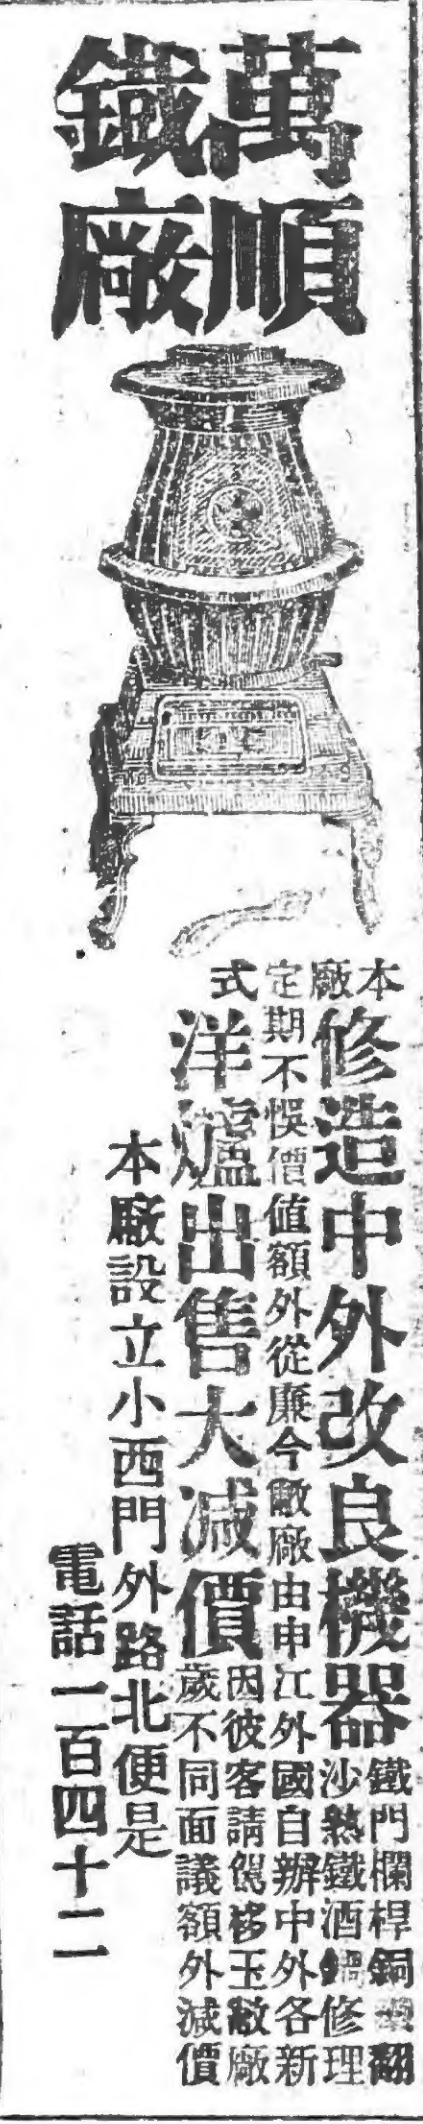 萬順
鐵廠
本廠修造中外改良機器
鐵門欄桿銅翻
沙熟鐵酒鍋修理
定期不悞價值額外從廉今敝廠由申江外國自辦中外各新
式洋爐出售大减價
因彼客請移玉敝廠
歲不同面議額外減價
本廠設立小西門外路北便是
電話一百四十二